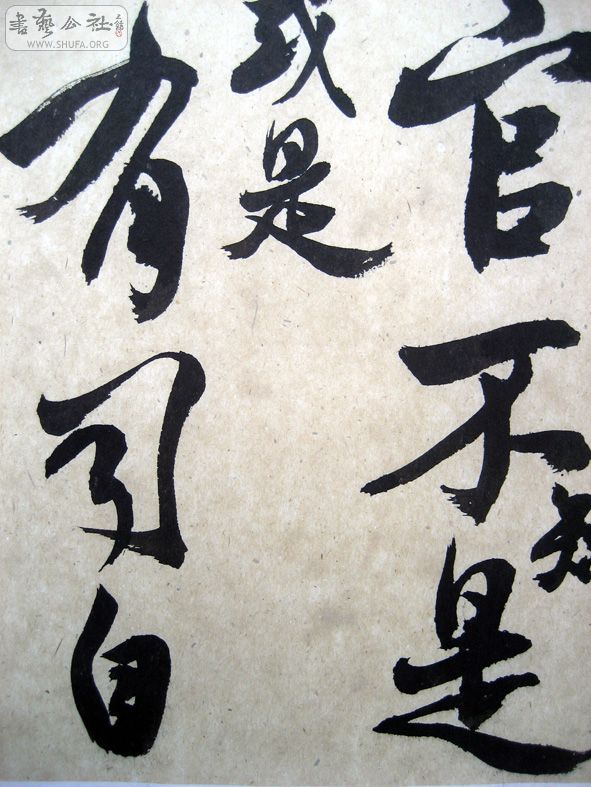 官不是
知
或是
有司自
書藝公社
WWW.SHUFA.ORG